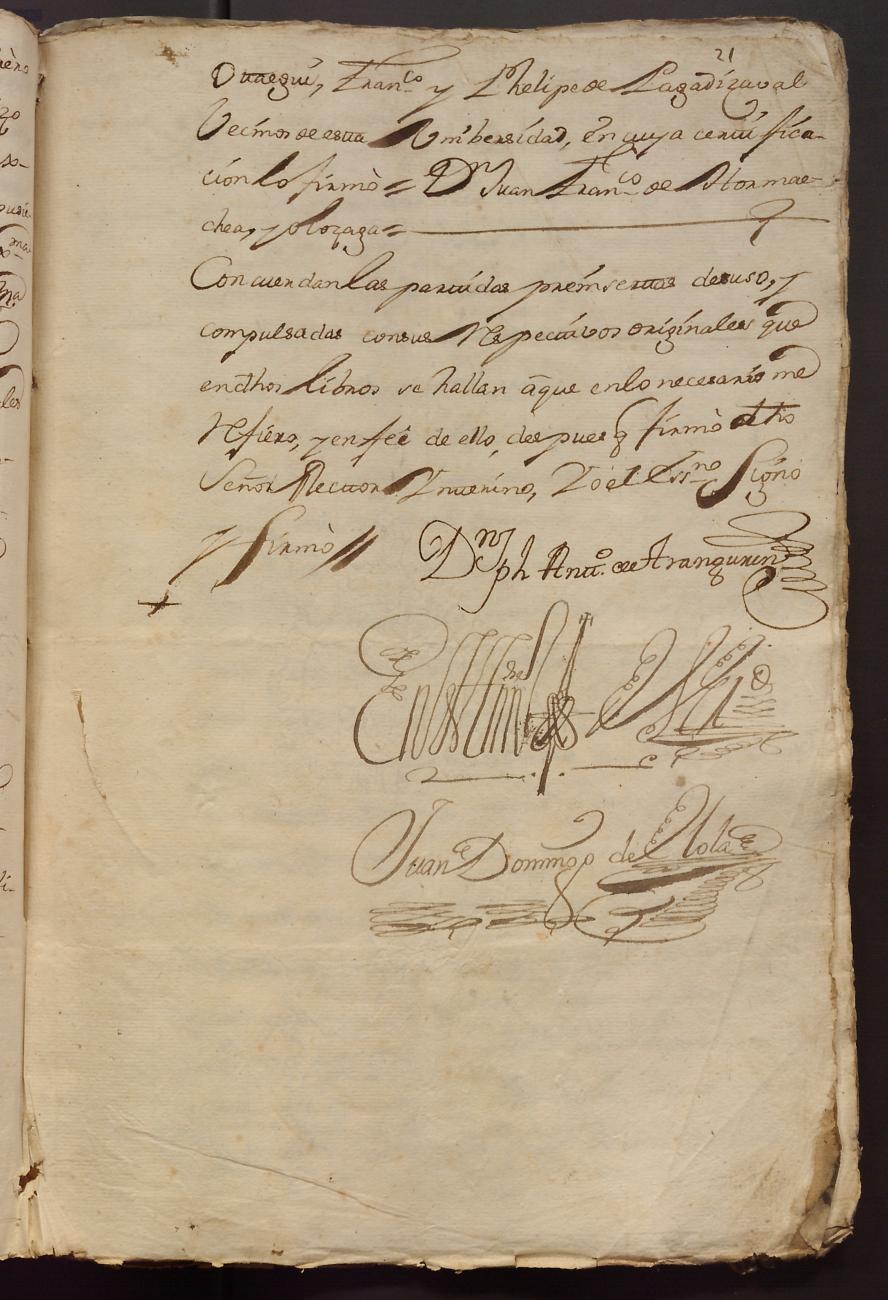 21
Otaegui, Franco y Phelipe de Lagadizaval
Vecinos de esta Vnibersidad, en cuya certifica-
ción lo firmò = Dn Juan Franco de Hormae-
chea, y olozaga =
Concuerdan las partidas preinsertas de suso, y
compulsadas con sus Respectibos originales que
en dhos libros se hallan a que en lo necesario me
Refiero, y en feè de ello, despues q firmò dho
Señor Rector Ynterino, Yo el Essno Signo
y firmò //
Dn Jph Antto. de Aranguren
En testimo de Verdad
Juan Domingo de